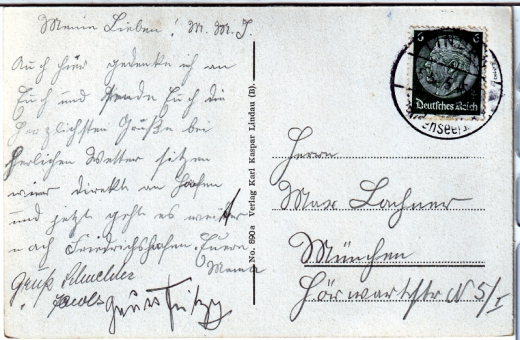 Meine Lieben! M. M. J.
Auch hier gedenke ich an
Euch und sende Euch die
herzlichsten Grüße bei
herlichen Wetter sitzen
wier direkte an Hafen
und jetzt geht es weiter
nach Friedrichshafen. Euere
Mema
Gruß
Jacob
Gruß Fritz
No. 890a Verlag Karl Kaspar Lindau (B).
6 6
Deutsches Reich
Herrn
Max Lachner
München
Hörwarthstr N 5/I